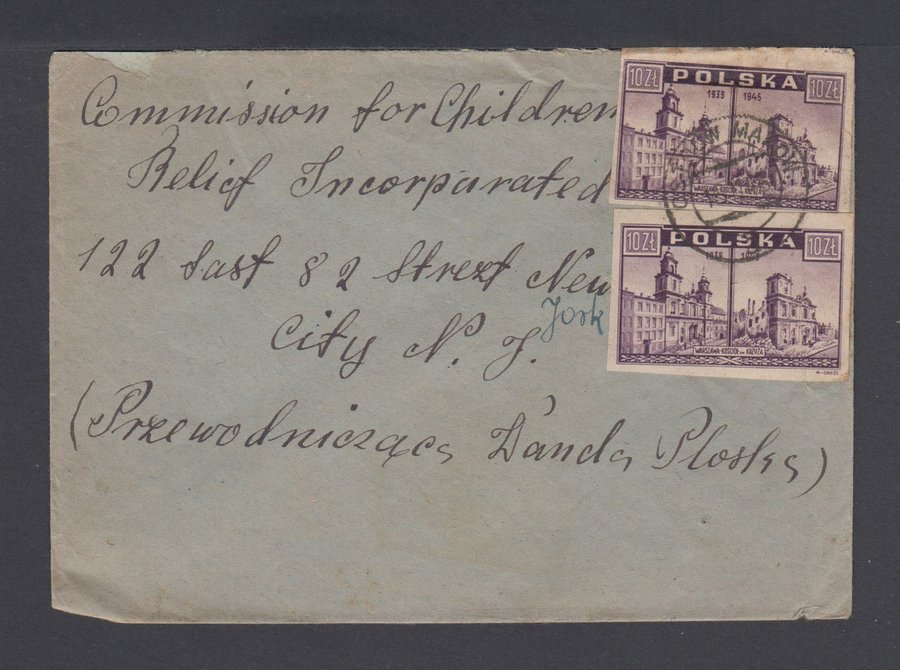 Commission for Children
Relief Incorparated
122 East 82 Strezt New
Jork
City N. J.
(Przewodnicząca Wanda Ploska)
10 ZŁ POLSKA 10 ZŁ
1939 1945
WARSZAWA-KOŚCIÓŁ ŚW. KRZYŻA
10 ZŁ POLSKA 10 ZŁ
1939 1945
WARSZAWA-KOŚCIÓŁ ŚW. KRZYŻA